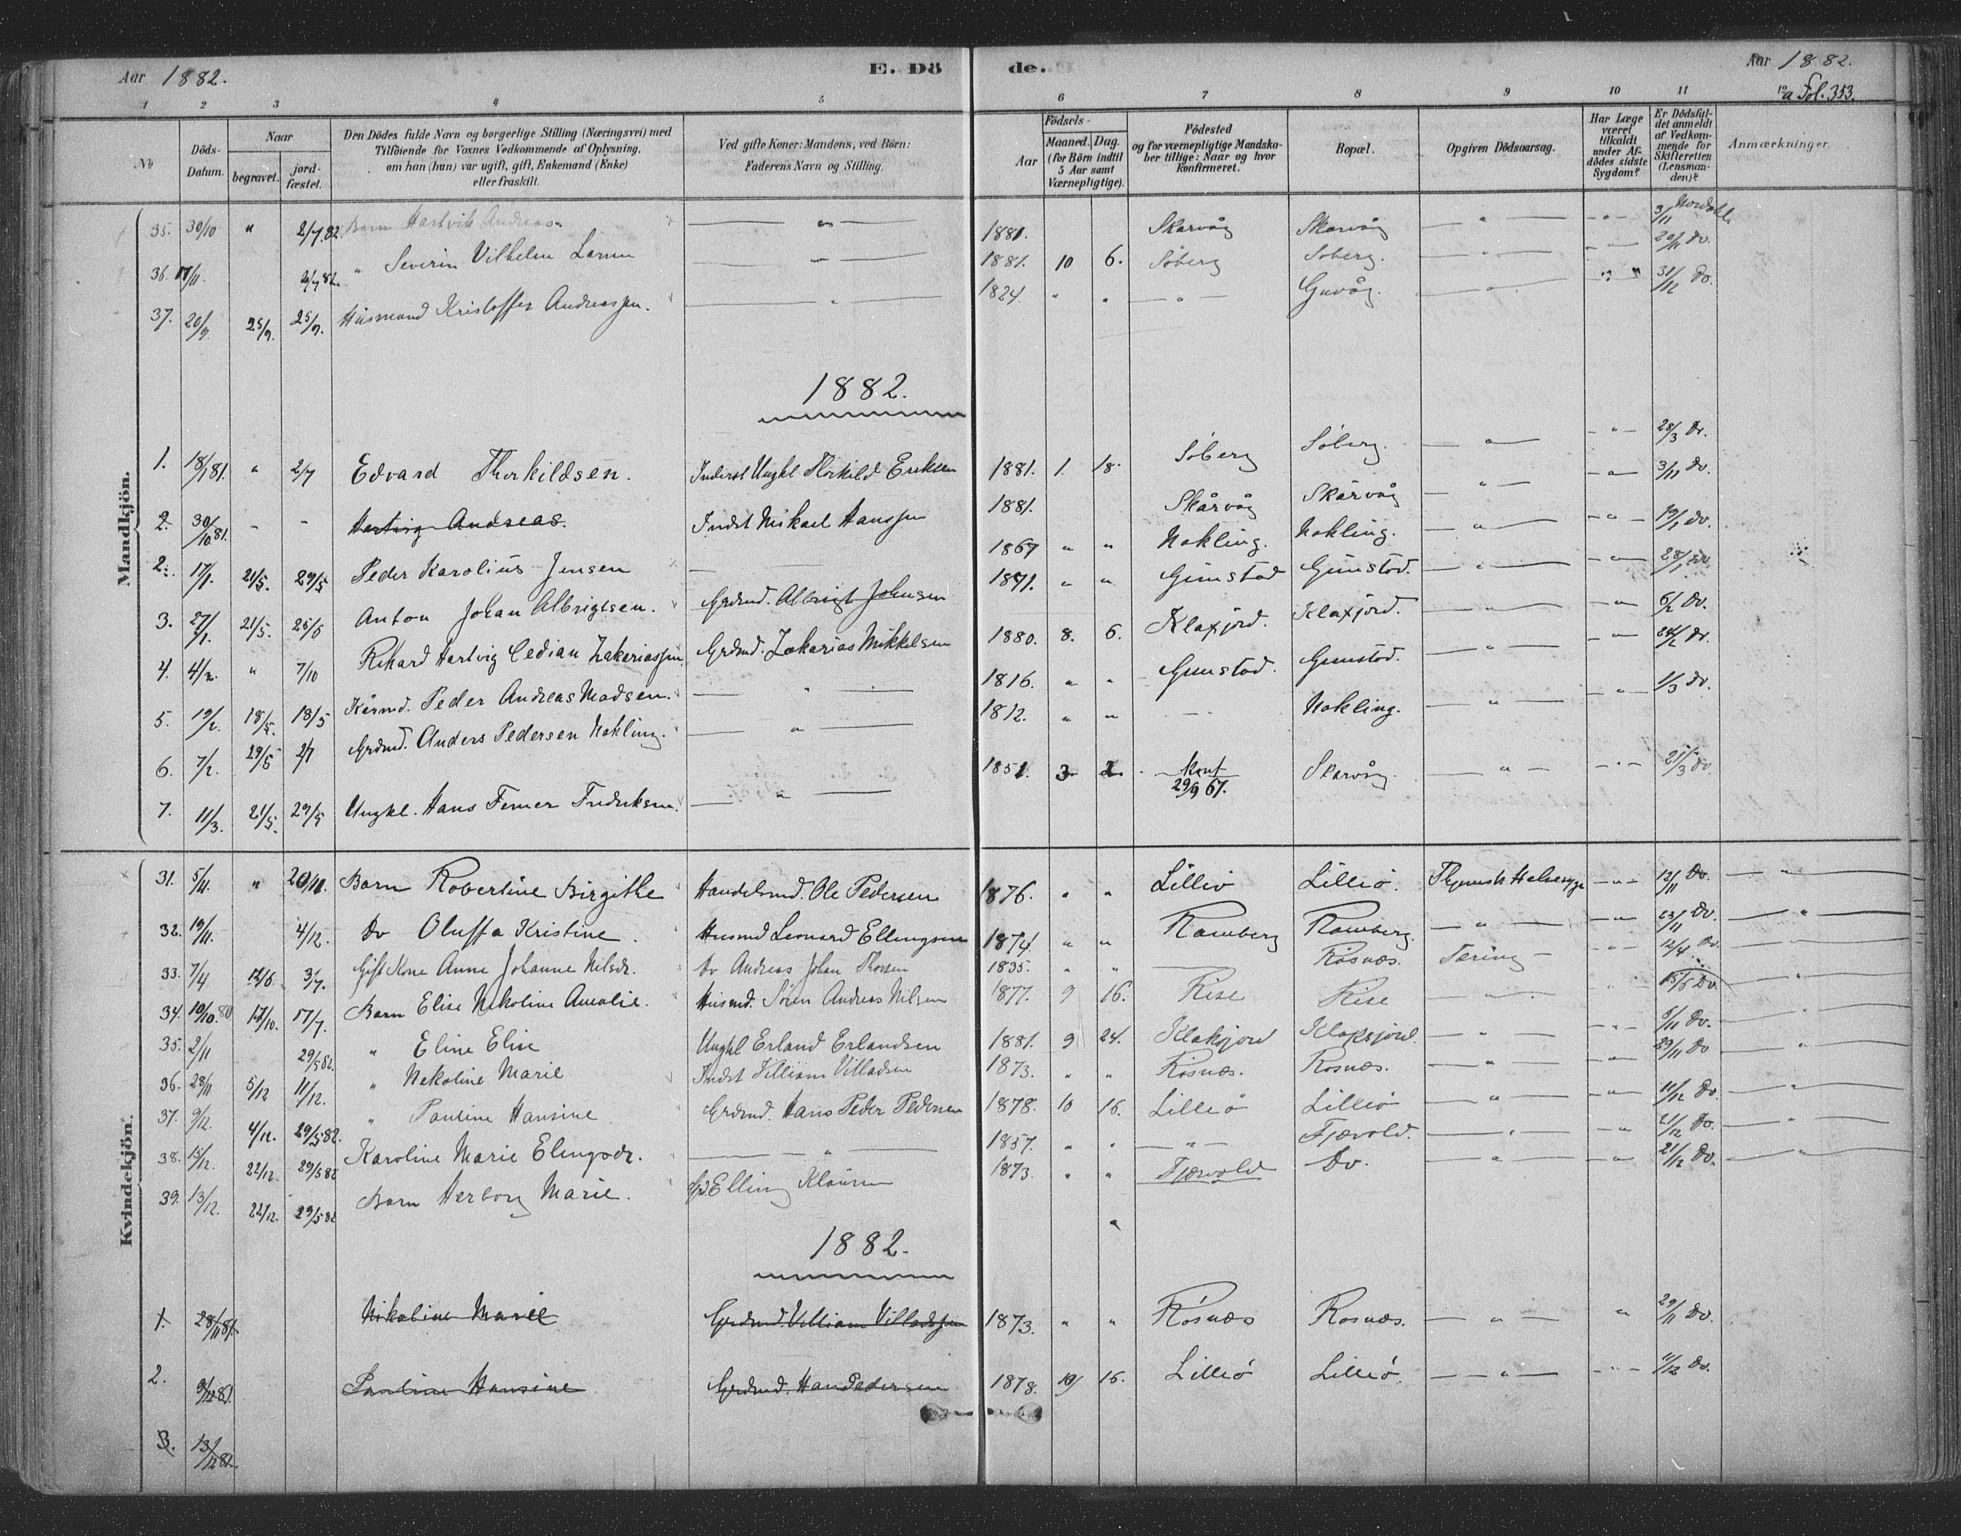 Aar 1882. E. Dö de. Aar 1882.
Fol. 353.
1 2 3 4 5 6 7 8 9 10 11 12
No
Döds-Datum.
Naar
begravet.
jord-fæstet.
Den Dödes fulde Navn og borgerlige Stilling (Næringsvei) med
Tilföiende for Voxnes Vedkommende af Oplysning,
om han (hun) var ugift, gift, Enkemand (Enke)
eller fraskilt.
Ved gifte Koner: Mandens, ved Börn:
Faderens Navn og Stilling.
Födsels-
Aar
Maaned. Dag.
(for Börn indtil
5 Aar samt
Værnepligtige).
Födested
og for værnepligtige Mandska-
ber tillige: Naar og hvor
konfirmeret.
Bopæl.
Opgiven Dödsaarsag.
Har Læge
været
tilkaldt
under Af-
dödes sidste
Sygdom?
Er Dödsfal-
det anmeldt
af Vedkom-
mende for
Skifteretten
(Lensman-
den)?
Anmærkninger.
Mandkjön.
35. 30/10 " 2/7 82. Barn Hartvik Andreas. — " — 1881. Skarvåg Skarvåg — " — " 3/11
36. 17/11. 2/7 82. " Severin Vilhelm — " — 1881. 10 6. Søberg Søberg. — " — " Do.
37. 20/9 25/9. 25/9. Husmand Kristoffer Andreassen. — " — 1824. " " — " — — " — " " 31/12 Do.
1882.
1. 18/1 81. " 2/7 Edvard Thorkildsen. Inderst Ungkl Thorkild Eriksen 1881. 1. 18. Søberg Søberg. — " — " 28/3 Do.
2. 30/10 81. - - Hartvig Andreas. Indst Mikael Hanssen 1881. Skårvåg Skårvåg — " — " 3/11 Do.
2. 17/1. 21/5. 29/5 Peder Karolius Jensen — 1867 " " Nokling. Nokling. — " — " 19/1 Do.
3. 27/1. 21/5. 25/6 Anton Johan Albrigtsen. Grdmd. Albrigt Johnsen " " Gimstad Gimstod. — " — " 28/1 Do.
4. 4/2. " 7/10 Rikard Hartvig Cedian Zakariassen Grdmd. Zakarias Mikkelsen 1880. 8. 6. Klaxjord. Klaxjord. — " — " 6/2 Do.
5. 19/2. 18/5. 18/5 Kårmd. Peder Andreas Madsen. — " — 1816. " " Gimstad. Gimstod. — " — " 24/2 Do.
6. 7/2. 29/5 2/7 Grdmd. Anders Pedersen Nokling. — " — 1812. " " — Nokling. — " — " 1/3 Do.
7. 11/3. 21/5. 29/5 Ungkl. Hans Fredriksen. — " — 1851. 3. Konf 29/9 67. Skarvåg. — " — " 21/3 Do.
Kvindekjön.
31. 5/11. " 20/11. Barn Robertine Birgithe Handelsmd. Ole Pedersen 1876. " " Lilliø Lilliø. Halssyge — " — 12/11 Do. — " —
32. 19/11. 4/12. Do Oluffa Kristine. Husmd Leonard Ellingsen 1874 " " Ramberg Ramberg. — " — " 23/11 Do. — " —
33. 7/4 3/7. Gift Kone Anne Johanne Nilsdr. Do Andreas Johan 1835. " " — Rosnæs. Tæring — " 12/4 Do.
34. 19/10. 80 17/10. 17/7. Barn Elise Nikoline Amalie. Husmd. Søren Andreas Nilsen 1877. 9 16. Rise Rise — " — " Do.
35. 2/11 29/5 82. " Eline Elise Ungkl Erland Erlandsen 1881. 9 24. Klaksjord Klaksjord. — " — " Do. — " —
36. 28/11 5/12 11/12. " Nekoline Marie Indst Villiam Villadsen 1873. " " Rosnæs. Rosnæs. — " — " 29/11 Do — " —
37. 9/12. 4/12. 29/5 82. " Pauline Hansine Grdmd. Hans Peder Pedersen 1878. 10 16. Lilliø Lilliø — " — " 11/12 Do. — " —
38. 13/12. 22/12. 29/5 82 Karoline Marie Elingsdr. — " — 1857. " " — " — Fjærvold. — " — " 21/12 Do. — " —
39. 13/12. 22/12. 29/5 82 Barn Herborg Marie. Elling 1873. " " Fjærvold Do. — " — " 21/12 Do. — " —
1882.
1. 28/11 81. Nikoline Marie Grdmd. Villiam Villadsen 1873. " " Rosnæs Rosnæs. — " — " 29/11 Do.
2. 9/12 81. Pauline Hansine Grdmd. Hans Pedersen 1878. 10 16. Lilliø Lilliø. — " — " 11/12 Do.
3. 13/12 81.